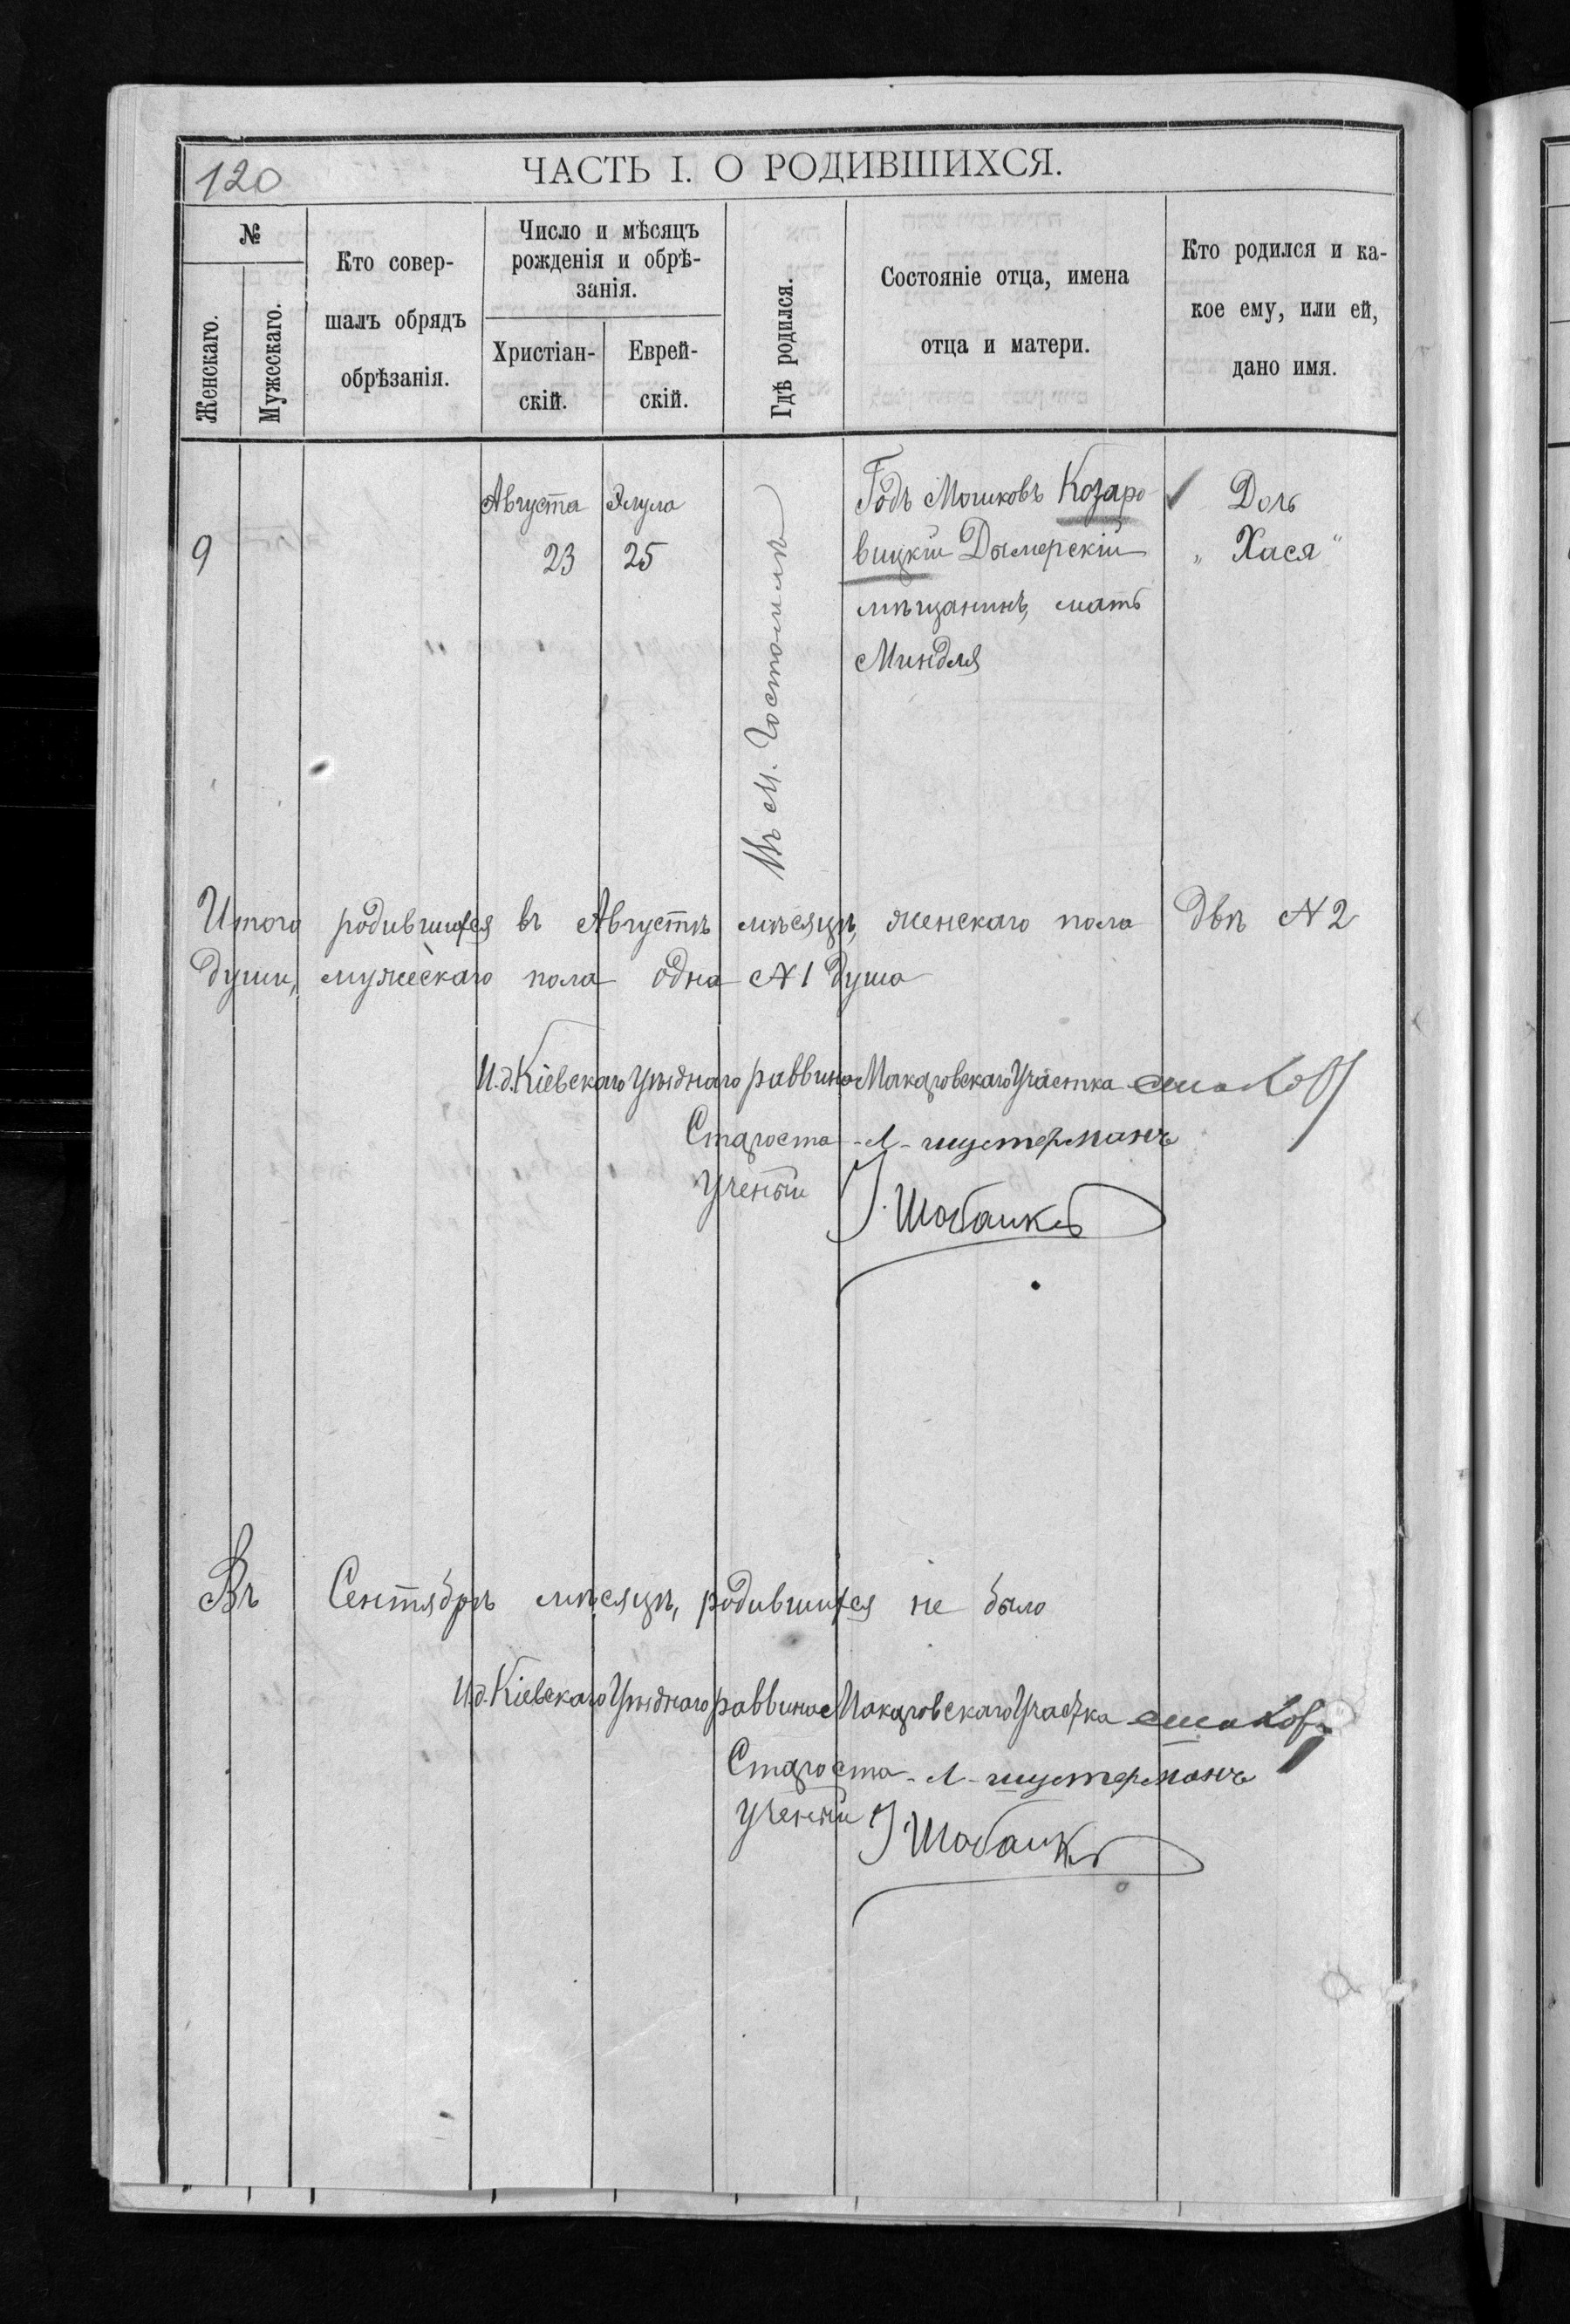 120
ЧАСТЬ I. О РОДИВШИХСЯ.
№
Женскаго.
Мужескаго.
Кто совер-
шалъ обрядъ
обрѣзанія.
Число и мѣсяцъ
рожденія и обрѣ-
занія.
Христіан-
скій.
Еврей-
скій.
Гдѣ родился.
Состояніе отца, имена
отца и матери.
Кто родился и ка-
кое ему, или ей,
дано имя.
9
Августа
23
Элула
25
Въ м. Гостомлѣ
Годъ Мошковъ Козаро
вицкій Дымерскій
мѣщанинъ, мать
Миндля
Дочь
„Хася“
Итого родившихся въ Августѣ мѣсяцѣ, женскаго пола двѣ N 2
души, мужескаго пола одна N 1 душа
И.д. Кіевскаго Уѣзднаго раввина Макаровскаго Участка
Староста Л. Шустерманъ
Ученый
Въ Сентябрѣ мѣсяцѣ, родившихся не было
И.д. Кіевскаго Уѣзднаго раввина Макаровскаго Участка
Староста Л. Шустерманъ
Ученый